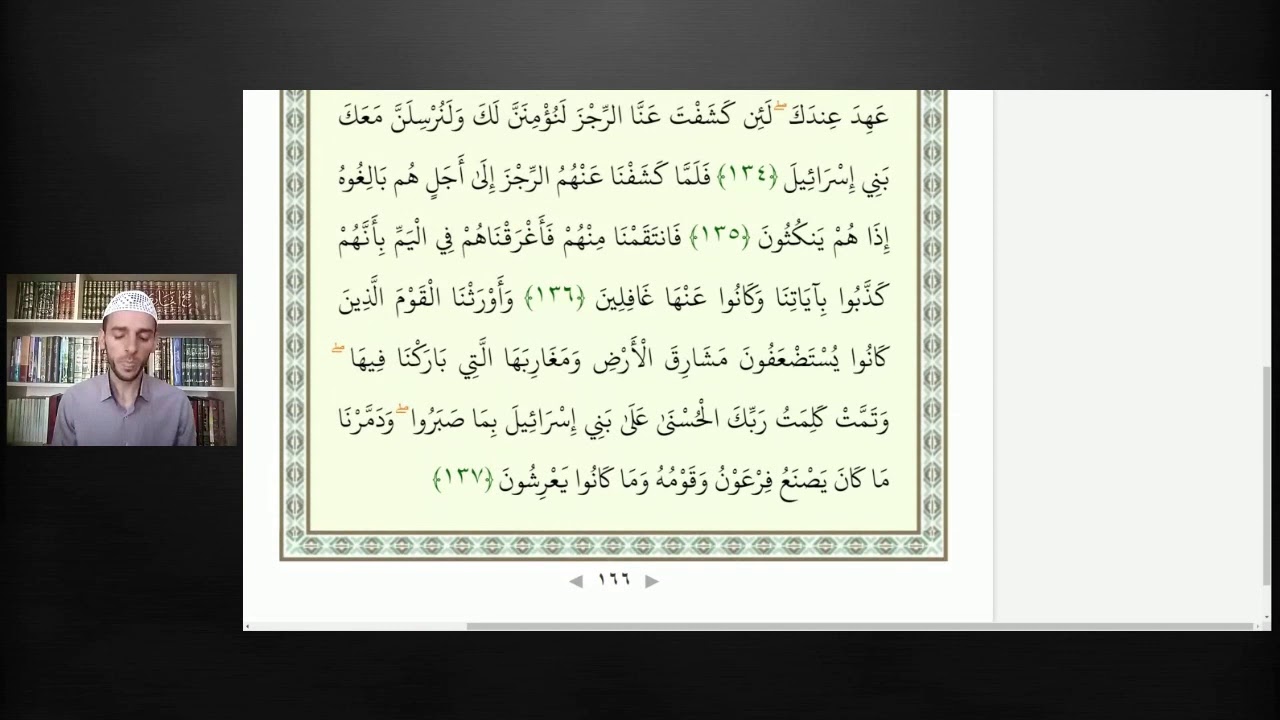 عَهِدَ عِندَكَ ۖ لَئِن كَشَفْتَ عَنَّا الرِّجْزَ لَنُؤْمِنَنَّ لَكَ وَلَنُرْسِلَنَّ مَعَكَ
بَنِي إِسْرَائِيلَ ﴿١٣٤﴾ فَلَمَّا كَشَفْنَا عَنْهُمُ الرِّجْزَ إِلَىٰ أَجَلٍ هُم بَالِغُوهُ
إِذَا هُمْ يَنكُثُونَ ﴿١٣٥﴾ فَانتَقَمْنَا مِنْهُمْ فَأَغْرَقْنَاهُمْ فِي الْيَمِّ بِأَنَّهُمْ
كَذَّبُوا بِآيَاتِنَا وَكَانُوا عَنْهَا غَافِلِينَ ﴿١٣٦﴾ وَأَوْرَثْنَا الْقَوْمَ الَّذِينَ
كَانُوا يُسْتَضْعَفُونَ مَشَارِقَ الْأَرْضِ وَمَغَارِبَهَا الَّتِي بَارَكْنَا فِيهَا ۖ
وَتَمَّتْ كَلِمَتُ رَبِّكَ الْحُسْنَىٰ عَلَىٰ بَنِي إِسْرَائِيلَ بِمَا صَبَرُوا ۖ وَدَمَّرْنَا
مَا كَانَ يَصْنَعُ فِرْعَوْنُ وَقَوْمُهُ وَمَا كَانُوا يَعْرِشُونَ ﴿١٣٧﴾
١٦٦